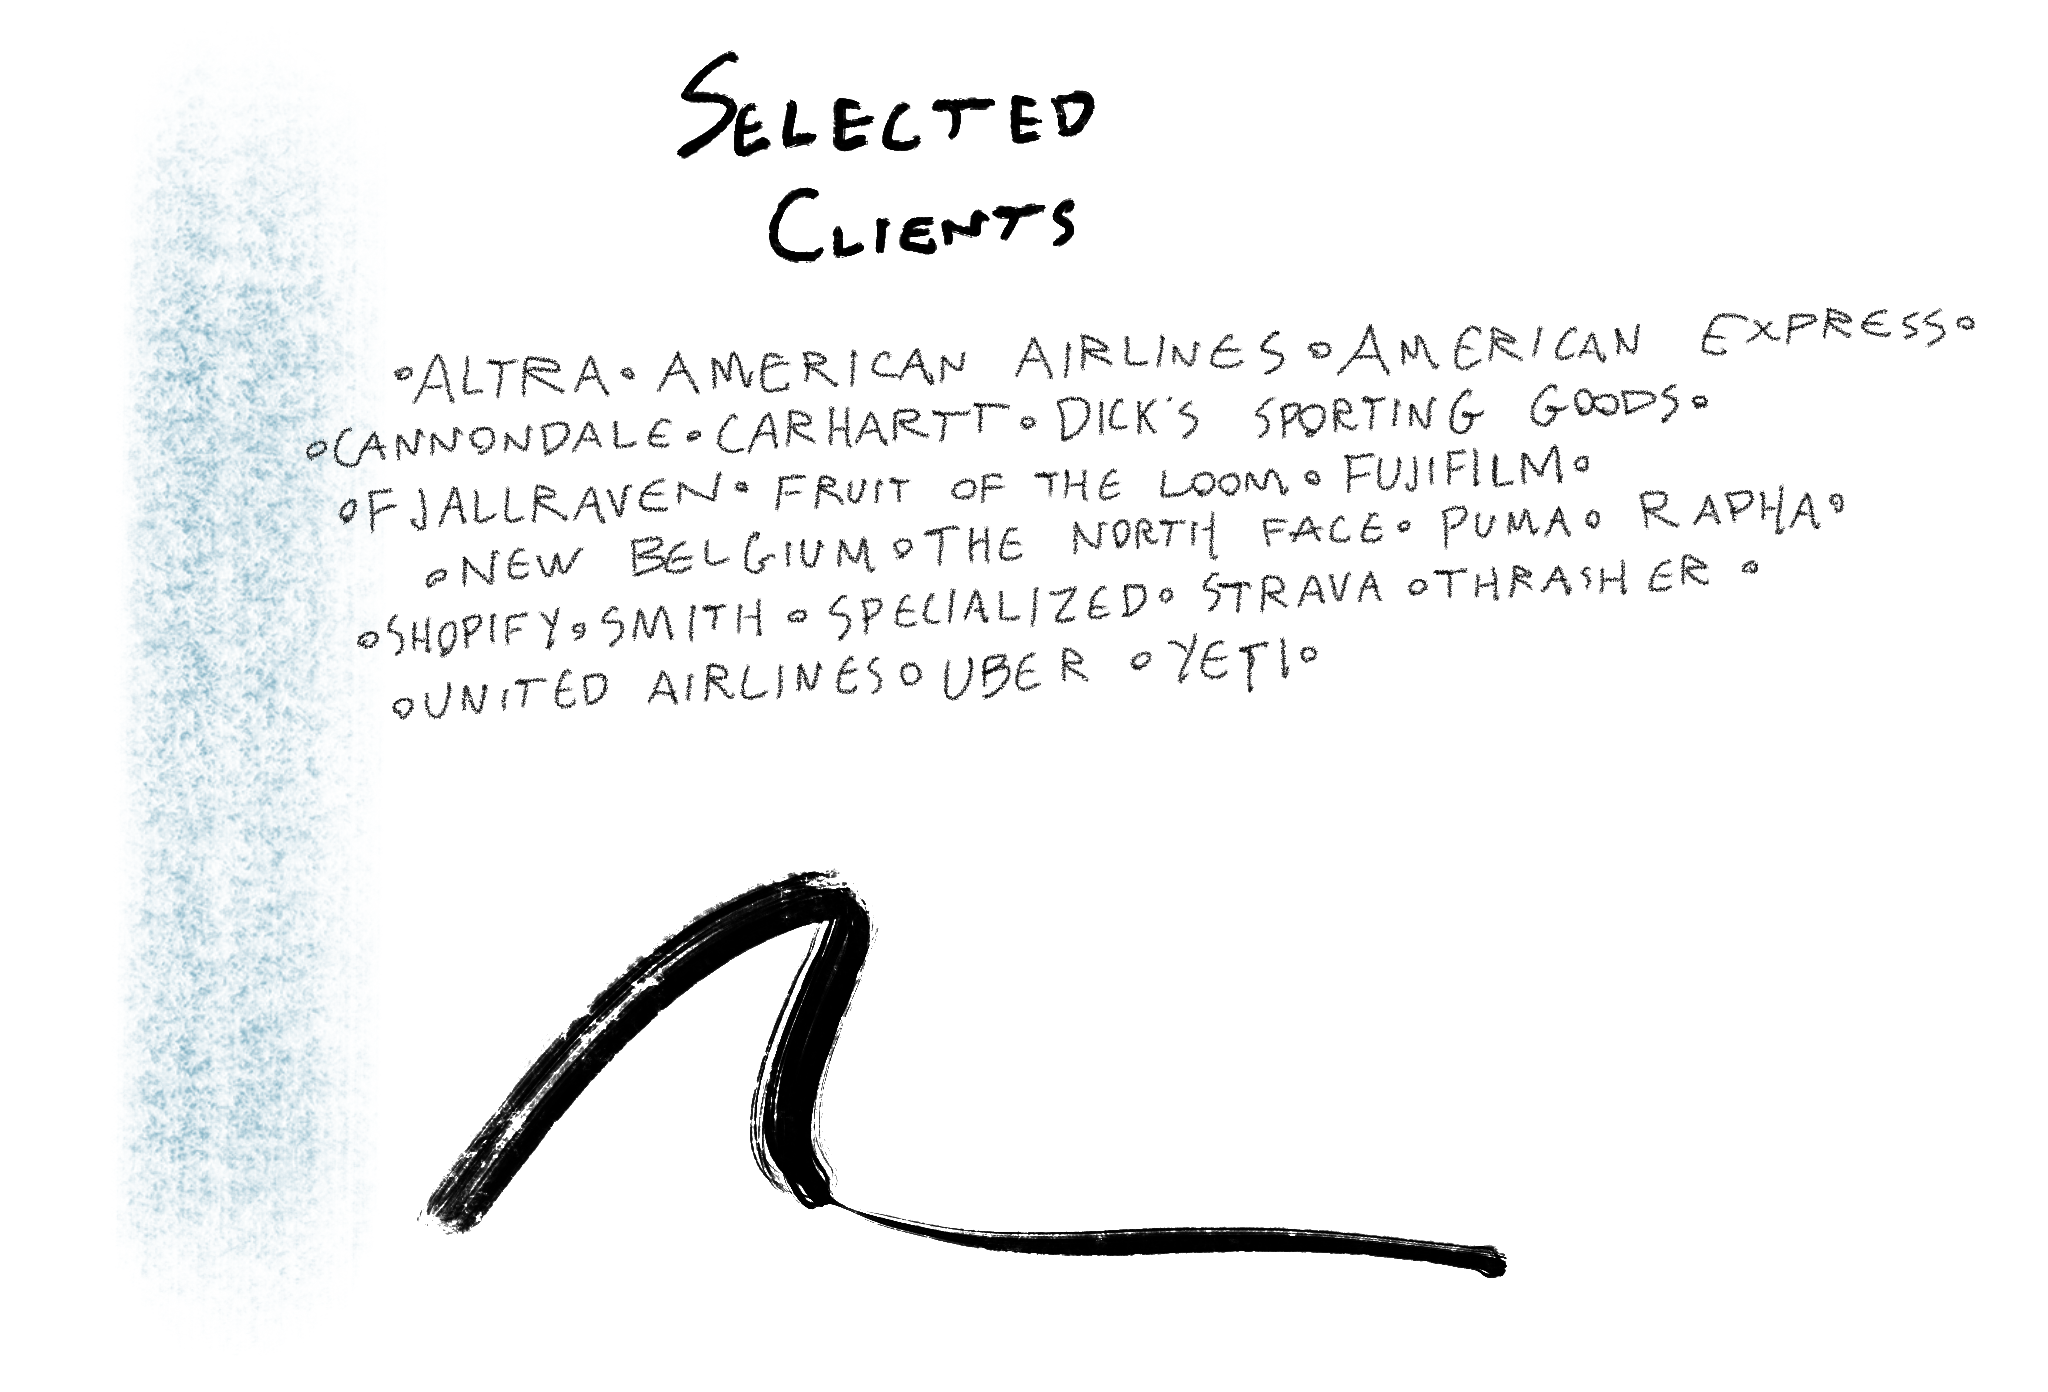 SELECTED
CLIENTS
°ALTRA° AMERICAN AIRLINES °AMERICAN EXPRESS°
°CANNONDALE° CARHARTT° DICK'S SPORTING GOODS°
°FJALLRAVEN° FRUIT OF THE LOOM° FUJIFILM°
°NEW BELGIUM °THE NORTH FACE° PUMA° RAPHA°
°SHOPIFY° SMITH ° SPECIALIZED° STRAVA °THRASHER °
°UNITED AIRLINES° UBER °YETI°